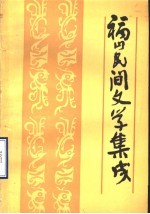 福山民间文学集成